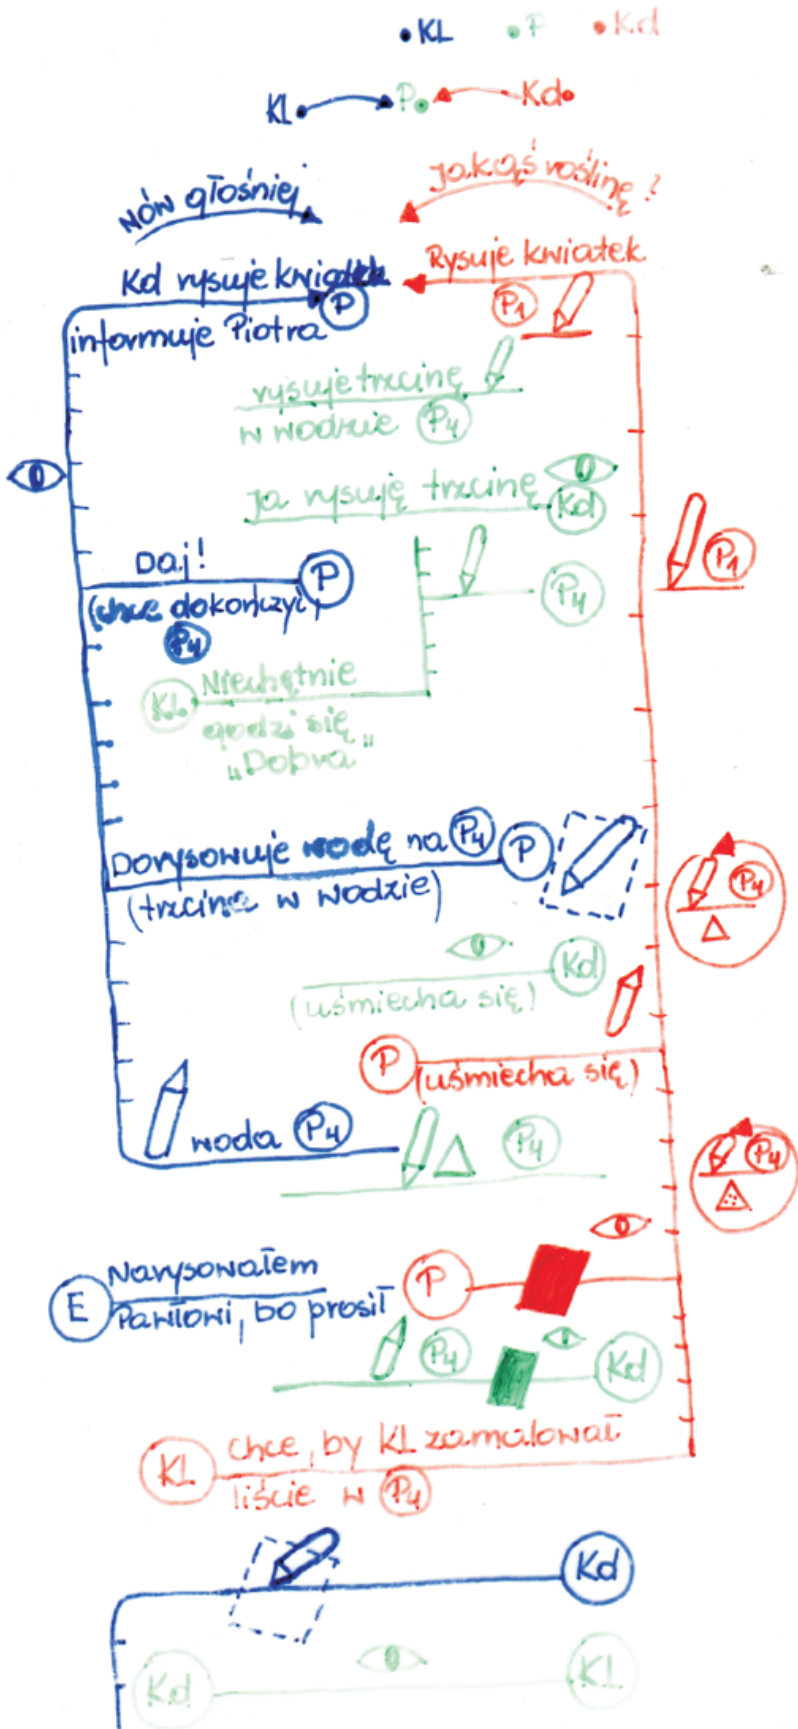 KL P Kd
KL P Kd
MÓW głośniej
Jakąś roślinę?
Kd rysuje kwiatek
Rysuje kwiatek
P
P1
informuje Piotra
rysuje trzcinę
w wodzie P4
Ja rysuję trzcinę
Kd
Daj!
P
P1
(chce dokończyć)
P4
P4
KL
Niechętnie
godzi się
„Dobra"
Dorysowuje wodę na P4
P
P4
(trzcina w wodzie)
Kd
(uśmiecha się)
P
(uśmiecha się)
woda P4
P4
P4
Narysowałem
E
P
Pawłowi, bo prosił
P4
Kd
chce, by KL zamalował
KL
liście w P4
Kd
Kd
KL